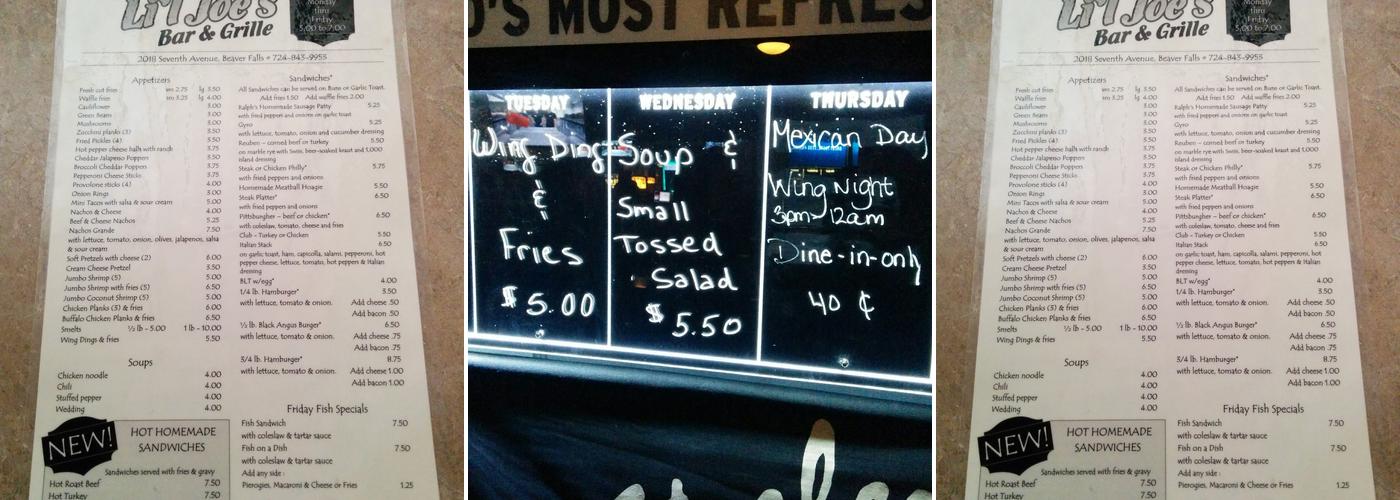 Li'l Joe's
Bar & Grille
Monday
thru
Friday
5:00 to 7:00
2018 Seventh Avenue, Beaver Falls • 724-843-9955
Appetizers
Fresh cut fries sm 2.75 lg 3.50
Waffle fries sm 3.25 lg 4.00
Cauliflower 3.00
Green Beans 3.00
Mushrooms 3.00
Zucchini planks (3) 3.50
Fried Pickles (4) 3.50
Hot pepper cheese balls with ranch 3.75
Cheddar Jalapeno Poppers 3.50
Broccoli Cheddar Poppers 3.50
Pepperoni Cheese Sticks 3.75
Provolone sticks (4) 4.00
Onion Rings 3.00
Mini Tacos with salsa & sour cream 5.00
Nachos & Cheese 4.00
Beef & Cheese Nachos 5.25
Nachos Grande 7.50
with lettuce, tomato, onion, olives, jalapenos, salsa
& sour cream
Soft Pretzels with cheese (2) 6.00
Cream Cheese Pretzel 3.50
Jumbo Shrimp (5) 5.00
Jumbo Shrimp with fries (5) 6.50
Jumbo Coconut Shrimp (5) 5.00
Chicken Planks (3) & fries 6.00
Buffalo Chicken Planks & fries 6.50
Smelts ½ lb - 5.00 1 lb - 10.00
Wing Dings & fries 5.50
Soups
Chicken noodle 4.00
Chili 4.00
Stuffed pepper 4.00
Wedding 4.00
NEW!
HOT HOMEMADE
SANDWICHES
Sandwiches served with fries & gravy
Hot Roast Beef 7.50
Hot Turkey 7.50
Sandwiches*
All Sandwiches can be served on Buns or Garlic Toast.
Add fries 1.50 Add waffle fries 2.00
Ralph's Homemade Sausage Patty 5.25
with fried peppers and onions on garlic toast
Gyro 5.25
with lettuce, tomato, onion and cucumber dressing
Reuben – corned beef or turkey 5.50
on marble rye with Swiss, beer-soaked kraut and 1,000
island dressing
Steak or Chicken Philly* 5.75
with fried peppers and onions
Homemade Meatball Hoagie 5.50
Steak Platter* 6.50
with fried peppers and onions
Pittsburgher – beef or chicken* 6.50
with coleslaw, tomato, cheese and fries
Club - Turkey or Chicken 5.50
Italian Stack 6.50
on garlic toast, ham, capicolla, salami, pepperoni, hot
pepper cheese, lettuce, tomato, hot peppers & Italian
dressing
BLT w/egg* 4.00
1/4 lb. Hamburger* 3.50
with lettuce, tomato & onion. Add cheese .50
Add bacon .50
½ lb. Black Angus Burger* 6.50
with lettuce, tomato & onion. Add cheese .75
Add bacon .75
3/4 lb. Hamburger* 8.75
with lettuce, tomato & onion. Add cheese 1.00
Add bacon 1.00
Friday Fish Specials
Fish Sandwich 7.50
with coleslaw & tartar sauce
Fish on a Dish 7.50
with coleslaw & tartar sauce
Add any side :
Pierogies, Macaroni & Cheese or Fries 1.25
O'S MOST REFRES
TUESDAY
Wing Ding
&
Fries
$5.00
WEDNESDAY
Soup &
Small
Tossed
Salad
$5.50
THURSDAY
Mexican Day
Wing Night
3pm-12am
Dine-in-only
40 ¢
Li'l Joe's
Bar & Grille
Monday
thru
Friday
5:00 to 7:00
2018 Seventh Avenue, Beaver Falls • 724-843-9955
Appetizers
Fresh cut fries sm 2.75 lg 3.50
Waffle fries sm 3.25 lg 4.00
Cauliflower 3.00
Green Beans 3.00
Mushrooms 3.00
Zucchini planks (3) 3.50
Fried Pickles (4) 3.50
Hot pepper cheese balls with ranch 3.75
Cheddar Jalapeno Poppers 3.50
Broccoli Cheddar Poppers 3.50
Pepperoni Cheese Sticks 3.75
Provolone sticks (4) 4.00
Onion Rings 3.00
Mini Tacos with salsa & sour cream 5.00
Nachos & Cheese 4.00
Beef & Cheese Nachos 5.25
Nachos Grande 7.50
with lettuce, tomato, onion, olives, jalapenos, salsa
& sour cream
Soft Pretzels with cheese (2) 6.00
Cream Cheese Pretzel 3.50
Jumbo Shrimp (5) 5.00
Jumbo Shrimp with fries (5) 6.50
Jumbo Coconut Shrimp (5) 5.00
Chicken Planks (3) & fries 6.00
Buffalo Chicken Planks & fries 6.50
Smelts ½ lb - 5.00 1 lb - 10.00
Wing Dings & fries 5.50
Soups
Chicken noodle 4.00
Chili 4.00
Stuffed pepper 4.00
Wedding 4.00
NEW!
HOT HOMEMADE
SANDWICHES
Sandwiches served with fries & gravy
Hot Roast Beef 7.50
Hot Turkey 7.50
Sandwiches*
All Sandwiches can be served on Buns or Garlic Toast.
Add fries 1.50 Add waffle fries 2.00
Ralph's Homemade Sausage Patty 5.25
with fried peppers and onions on garlic toast
Gyro 5.25
with lettuce, tomato, onion and cucumber dressing
Reuben – corned beef or turkey 5.50
on marble rye with Swiss, beer-soaked kraut and 1,000
island dressing
Steak or Chicken Philly* 5.75
with fried peppers and onions
Homemade Meatball Hoagie 5.50
Steak Platter* 6.50
with fried peppers and onions
Pittsburgher – beef or chicken* 6.50
with coleslaw, tomato, cheese and fries
Club - Turkey or Chicken 5.50
Italian Stack 6.50
on garlic toast, ham, capicolla, salami, pepperoni, hot
pepper cheese, lettuce, tomato, hot peppers & Italian
dressing
BLT w/egg* 4.00
1/4 lb. Hamburger* 3.50
with lettuce, tomato & onion. Add cheese .50
Add bacon .50
½ lb. Black Angus Burger* 6.50
with lettuce, tomato & onion. Add cheese .75
Add bacon .75
3/4 lb. Hamburger* 8.75
with lettuce, tomato & onion. Add cheese 1.00
Add bacon 1.00
Friday Fish Specials
Fish Sandwich 7.50
with coleslaw & tartar sauce
Fish on a Dish 7.50
with coleslaw & tartar sauce
Add any side :
Pierogies, Macaroni & Cheese or Fries 1.25